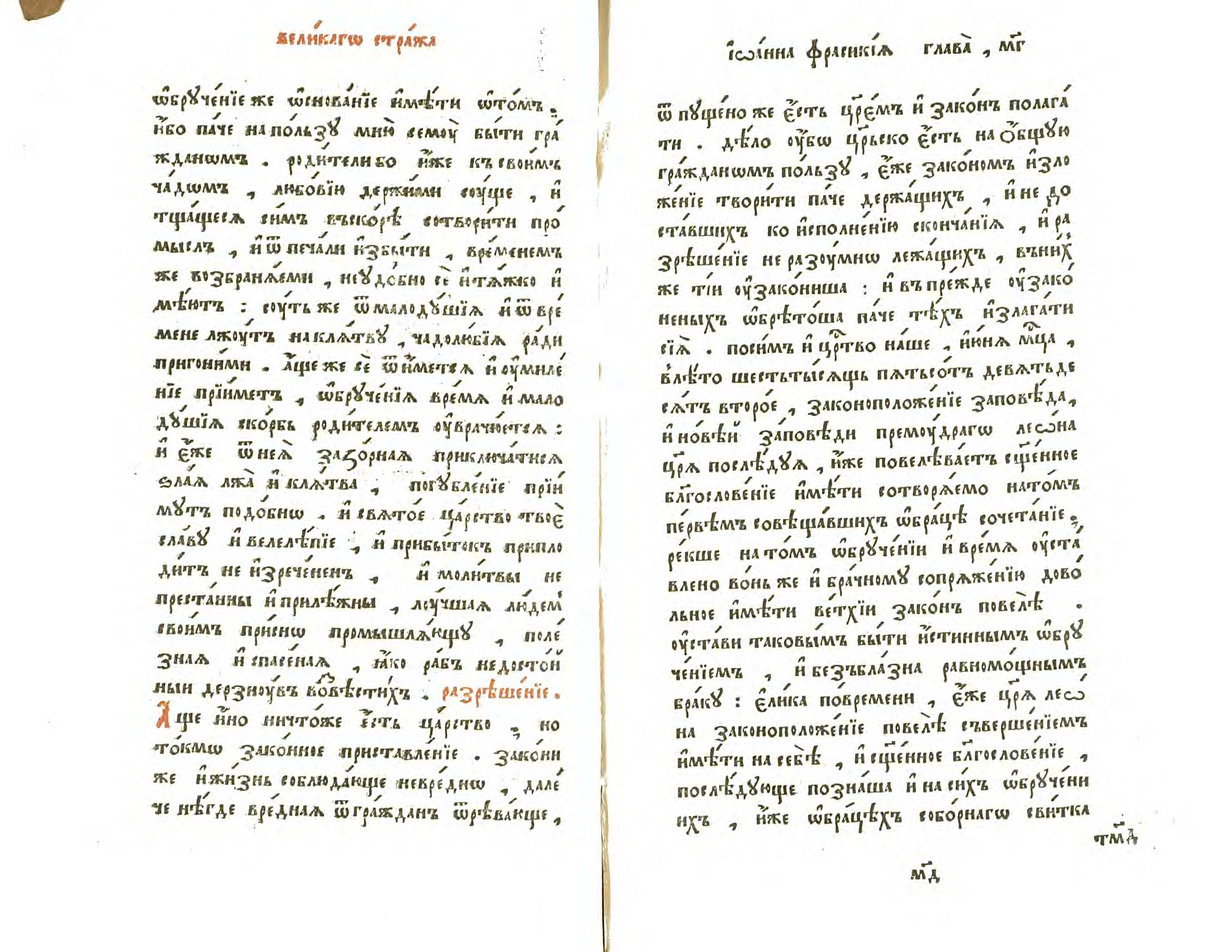 вели́кагѡ стра́жа
ѡ҆брꙋче́нїе же ѡ҆снова́нїе и҆мѣ́ти ѡ҆то́мъ.
и҆́бо па́че на по́льзꙋ мню̀ семоу̀ бы́ти гра́
жданѡмъ . роди́тели бо и҆́же къ свои́мъ
ча́дѡмъ , любо́вїю держи́ми соу́ще , и҆
тща́щеся си́мъ въско́рѣ сотвори́ти про́
мыслъ , и҆ ѿ печа́ли и҆збы́ти , вре́менемъ
же возбраня́еми , неудо́бно сѐ и҆ тя́жко и҆
мѣ́ютъ : соу́ть же ѿ малодꙋ́шїя и҆ ѿ вре́
мене лжоу́тъ на кля́твꙋ , чадолю́бїя ра́ди
пригони́ми . а҆́ще же сѐ ѿи҆́мется и҆ оу҆миле́
нїе прїи́метъ , ѡ҆брꙋче́нїя вре́мя и҆ мало
дꙋ́шїя ско́рбь роди́телемъ оу҆врачю́ется :
и҆ є҆́же ѿ нея̀ зазо́рная приключа́тися
ѕла́я лжа̀ и҆ кля́тва , погꙋбле́нїе прїи́
мꙋтъ подо́бнѡ . и҆ свято́е ца́рство твоѐ
сла́вꙋ и҆ велелѣ́пїе , и҆ прибы́токъ припло
ди́тъ не и҆зрече́ненъ , и҆ моли́твы не
преста́нны и҆ прилѣ́жны , лоу́чшая лю́дем
свои́мъ при́снѡ промышля́ющꙋ , поле́
зная и҆ спасе́ная , ꙗ҆́ко ра́бъ недосто́и
ныи дерзноу́въ во́вѣсти́хъ . разрѣше́нїе .
А҆́ще и҆́но ничто́же є҆́сть ца́рство , но
то́кмѡ зако́нное приставле́нїе . зако́ни
же и҆ жи́знь соблюда́юще невре́днѡ , дале́
че нѣ́где вре́дная ѿ гра́жданъ ѿрѣва́юще ,
і҆ѡа́нна фрасикі́я глава̀ , м҃г
ѿпꙋще́но же є҆́сть цр҃е́мъ и҆ зако́нъ полага́
ти . дѣ́ло оу҆́бѡ цр҃ьско є҆́сть на ѻ҆́бщꙋю
гра́жданѡмъ по́льзꙋ , є҆́же зако́номъ и҆зло
же́нїе твори́ти па́че держа́щихъ , и҆ не до
ста́вшихъ ко и҆сполне́нїю сконча́нїя , и҆ ра
зрѣше́нїе не разоу́мнѡ лежа́щихъ , въ ни́х
же ті́и оу҆зако́ниша : и҆ въ пре́жде оу҆зако́
неныхъ ѡ҆брѣто́ша па́че тѣ́хъ и҆злага́ти
сїя̀ . поси́мъ и҆ цр҃тво на́ше , і҆ю́ня мц҃а ,
в лѣ́то шестьты́сящь пятьсо́тъ девятьде
ся́тъ второ́е , законоположе́нїе заповѣ́да,
и҆ но́вѣй за́повѣди премоу́драгѡ леѡна
цр҃я̀ послѣ́дꙋя , и҆́же повелѣва́етъ сщ҃е́нное
блг҃ослове́нїе и҆мѣ́ти сотворя́емо на то́мъ
пе́рвѣмъ совѣща́вшихъ ѡ҆бра́цѣ сочета́нїе ,
ре́кше на то́мъ ѡ҆брꙋче́нїи и҆ вре́мя оу҆ста́
влено во́нь же и҆ бра́чномꙋ сопряже́нїю дово́
льное и҆мѣ́ти ве́тхїи зако́нъ повелѣ̀ .
оу҆ста́ви таковы́мъ бы́ти и҆́стиннымъ ѡ҆брꙋ
че́нїемъ , и҆ безъбла́зна равномо́щнымъ
бра́кꙋ : є҆ли́ка по́времени , є҆́же цр҃я̀ леѡ́
на законоположе́нїе повелѣ̀ съверше́нїемъ
и҆мѣ́ти на себѣ̀ , и҆ сщ҃е́нное блг҃ослове́нїе ,
послѣ́дꙋюще позна́ша и҆ на си́хъ ѡ҆брꙋче́ни
ихъ , и҆́же ѡ҆бра́цѣхъ собо́рнагѡ сви́тка
тм҃д
м҃д